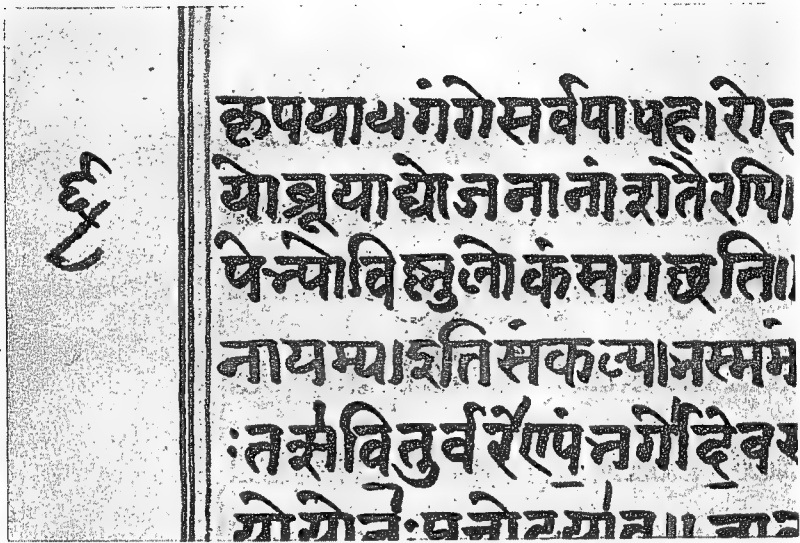 कृपयाथ गंगे सर्वपापह। रोह
यो ब्रूयाद्योजनानां शतैरपि।
पेभ्यो विष्णुलोकं स गछति॥
नायम्य। इति संकल्प्य। भस्म
:तत्सवितुर्वरेण्यं भर्गो देवस्
यो यो नः प्रचोदयात्॥